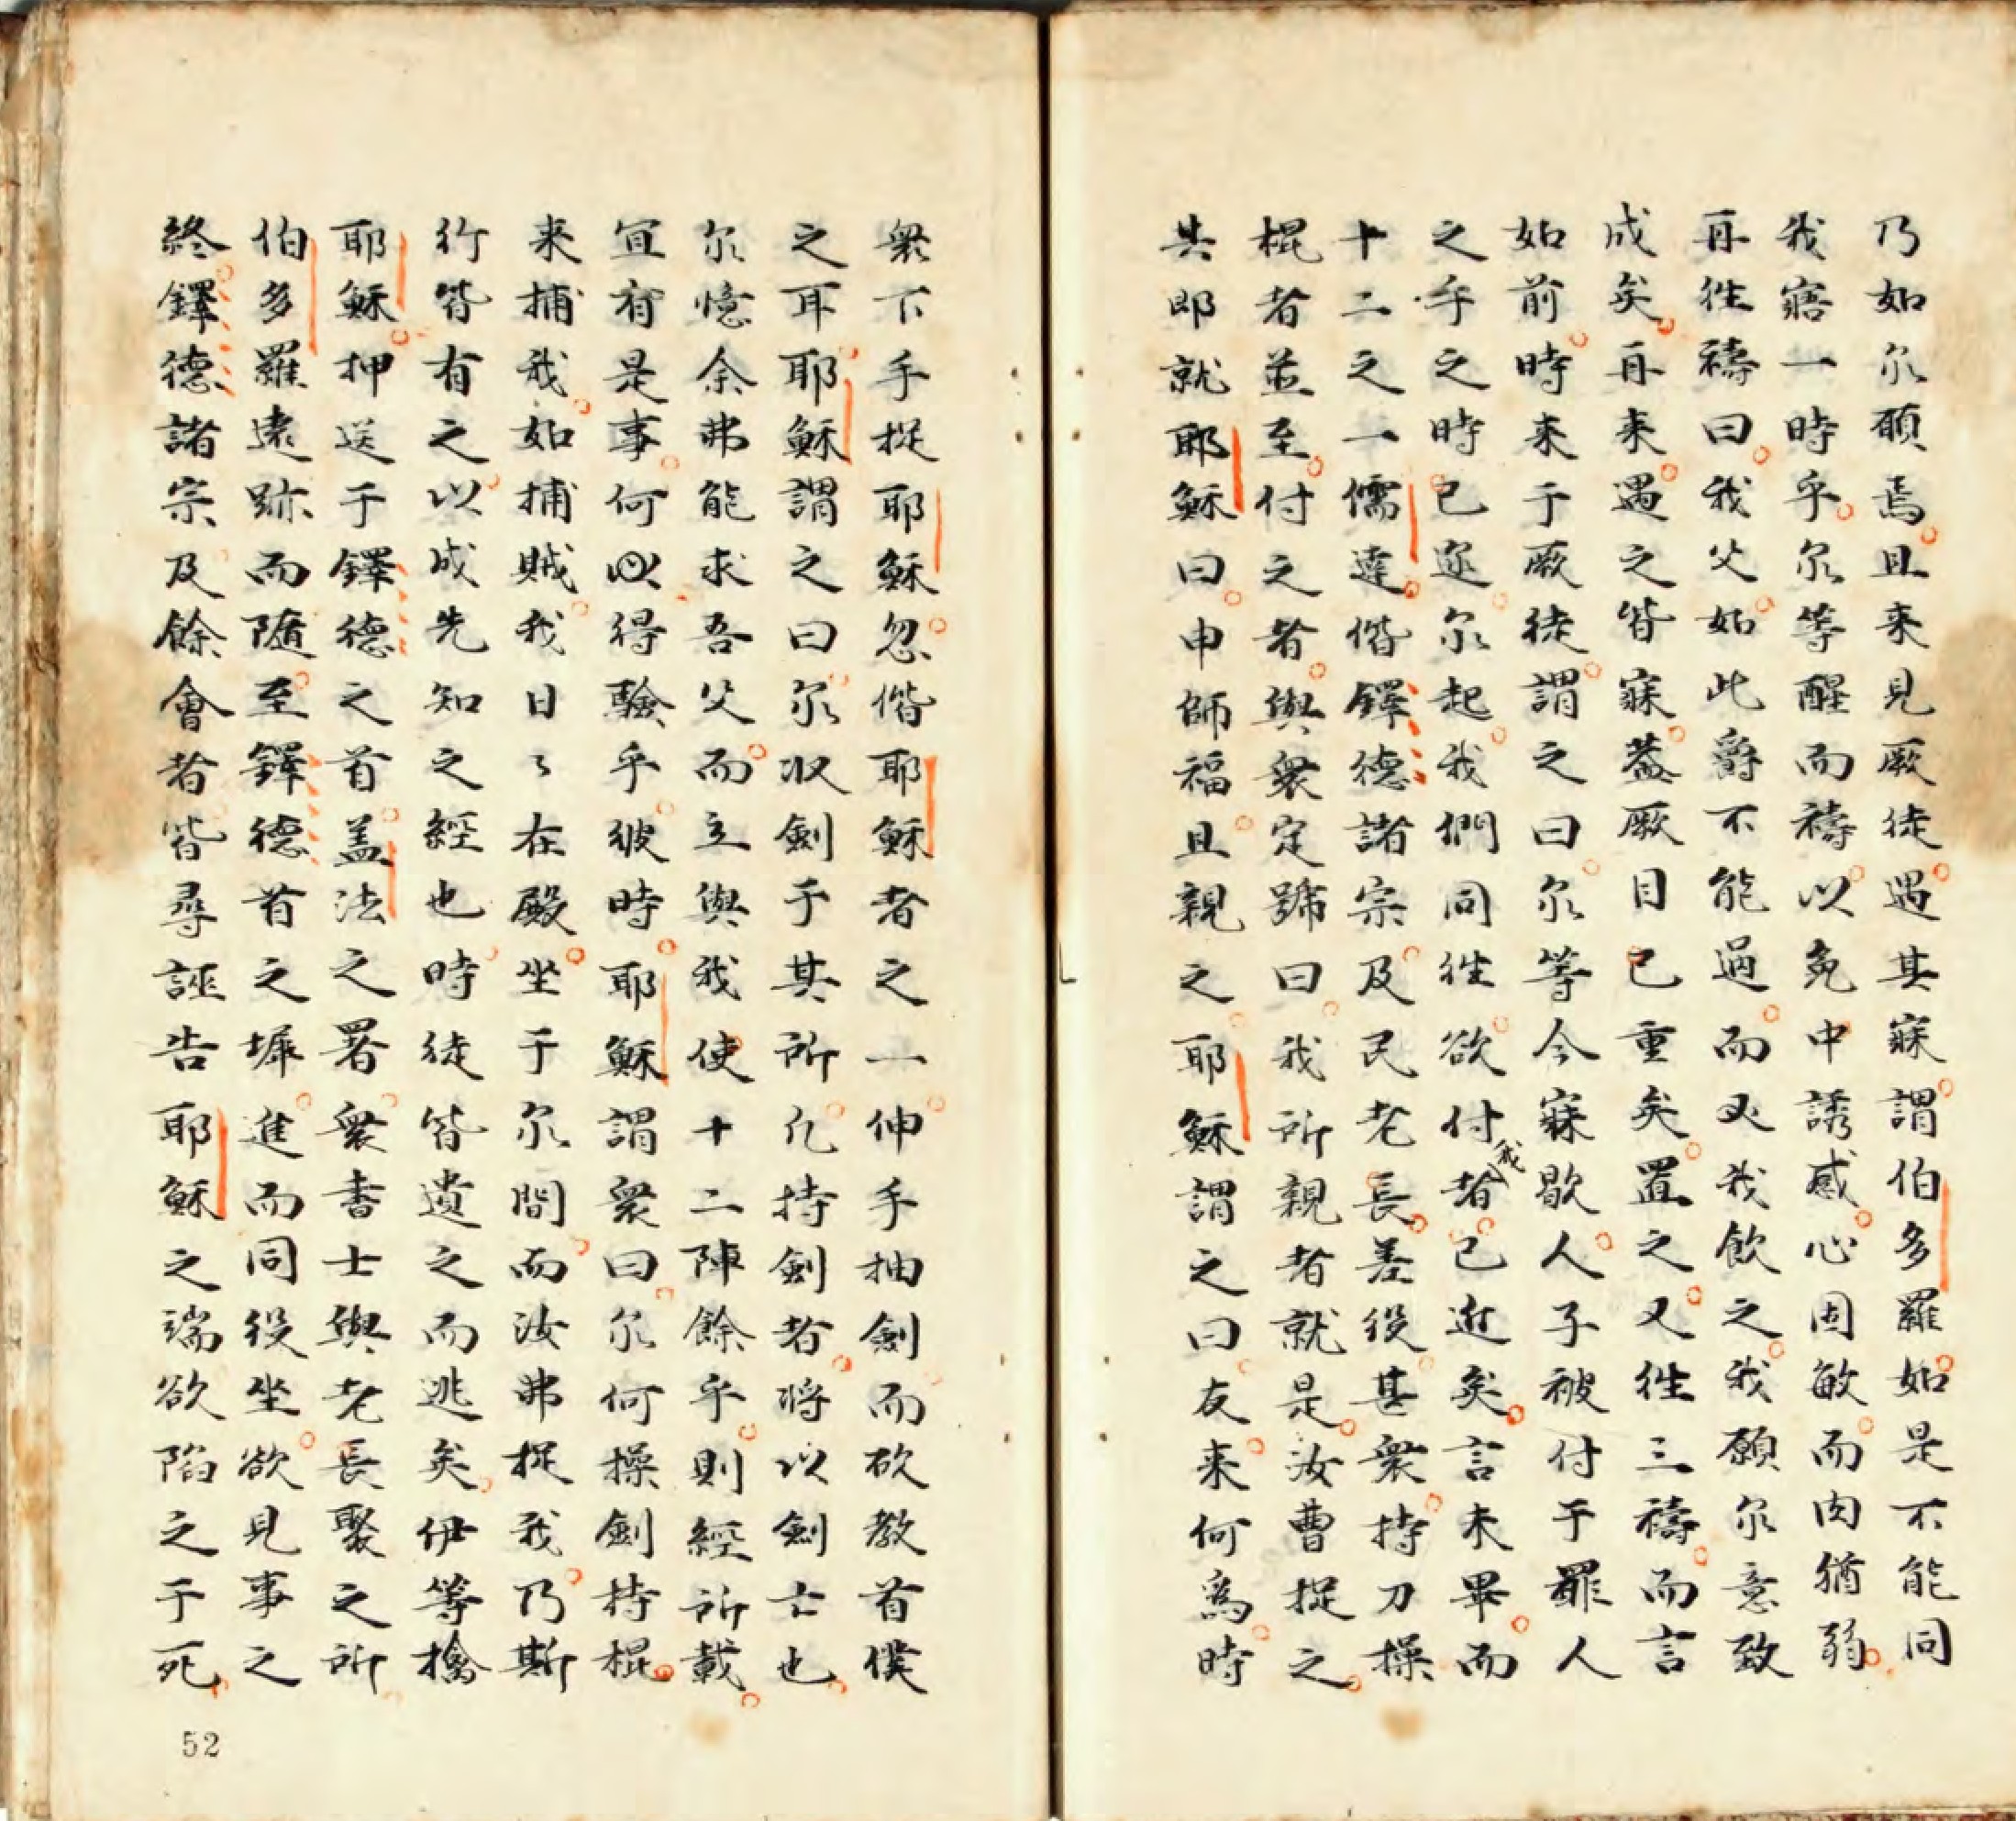 乃如尔願焉且来見厥徒遇其寐謂伯多羅如是不能同
我寤一時乎尔等醒而禱以免中誘感心固敏而肉猶弱
再徃禱曰我父如此爵不能過而又我飲之我願尔意致
成矣再来遇之皆寐葢厥目已重矣置之又徃三禱而言
如前時来于厥徒謂之曰尔等今寐歇人子被付于罪人
之手之時已迩尔起我們同徃欲付我者已近矣言未畢而
十二之一儒達偕鐸德諸宗及民老長差役甚衆持刀操
棍者並至付之者與衆定號曰我所親者就是汝曹捉之
其即就耶穌曰申師福且親之耶穌謂之曰友来何為時
衆下手捉耶穌忽偕耶穌者之一伸手抽劍而砍教首僕
之耳耶穌謂之曰尔収劍于其所凢持劍者將以劍亡也
尔憶余弗能求吾父而立與我使十二陣餘乎則經所載
宜有是事何以得驗乎彼時耶穌謂衆曰尔何操劍持棍
来捕我如捕賊我日々在殿坐于尔間而汝弗捉我乃斯
行皆有之以成先知之經也時徒皆遺之而逃矣伊等擒
耶穌押送于鐸德之首盖法之署衆書士與老長聚之所
伯多羅遠跡而隨至鐸德首之墀進而同役坐欲見事之
終鐸德諸宗及餘會者皆尋誣告耶穌之端欲陷之于死
52